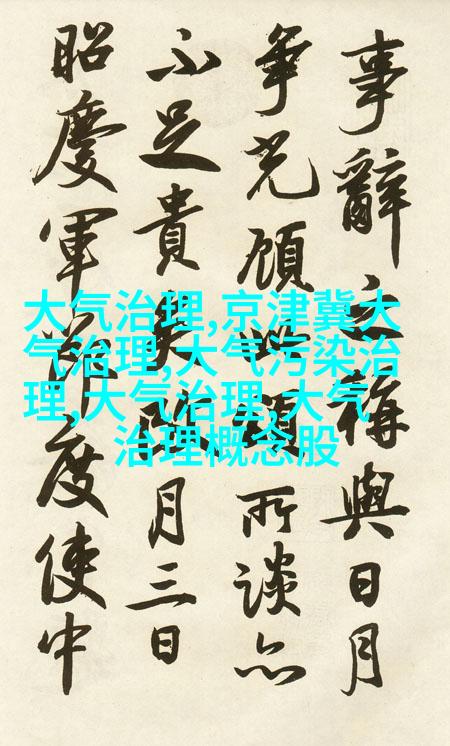 事辭之稱與日月
爭光顧此所談亦
不足貴矣月三日
昭慶軍節度使中
大气治理,京津冀大
气治理,大气污染治
理,大气治理,大气
治理概念股